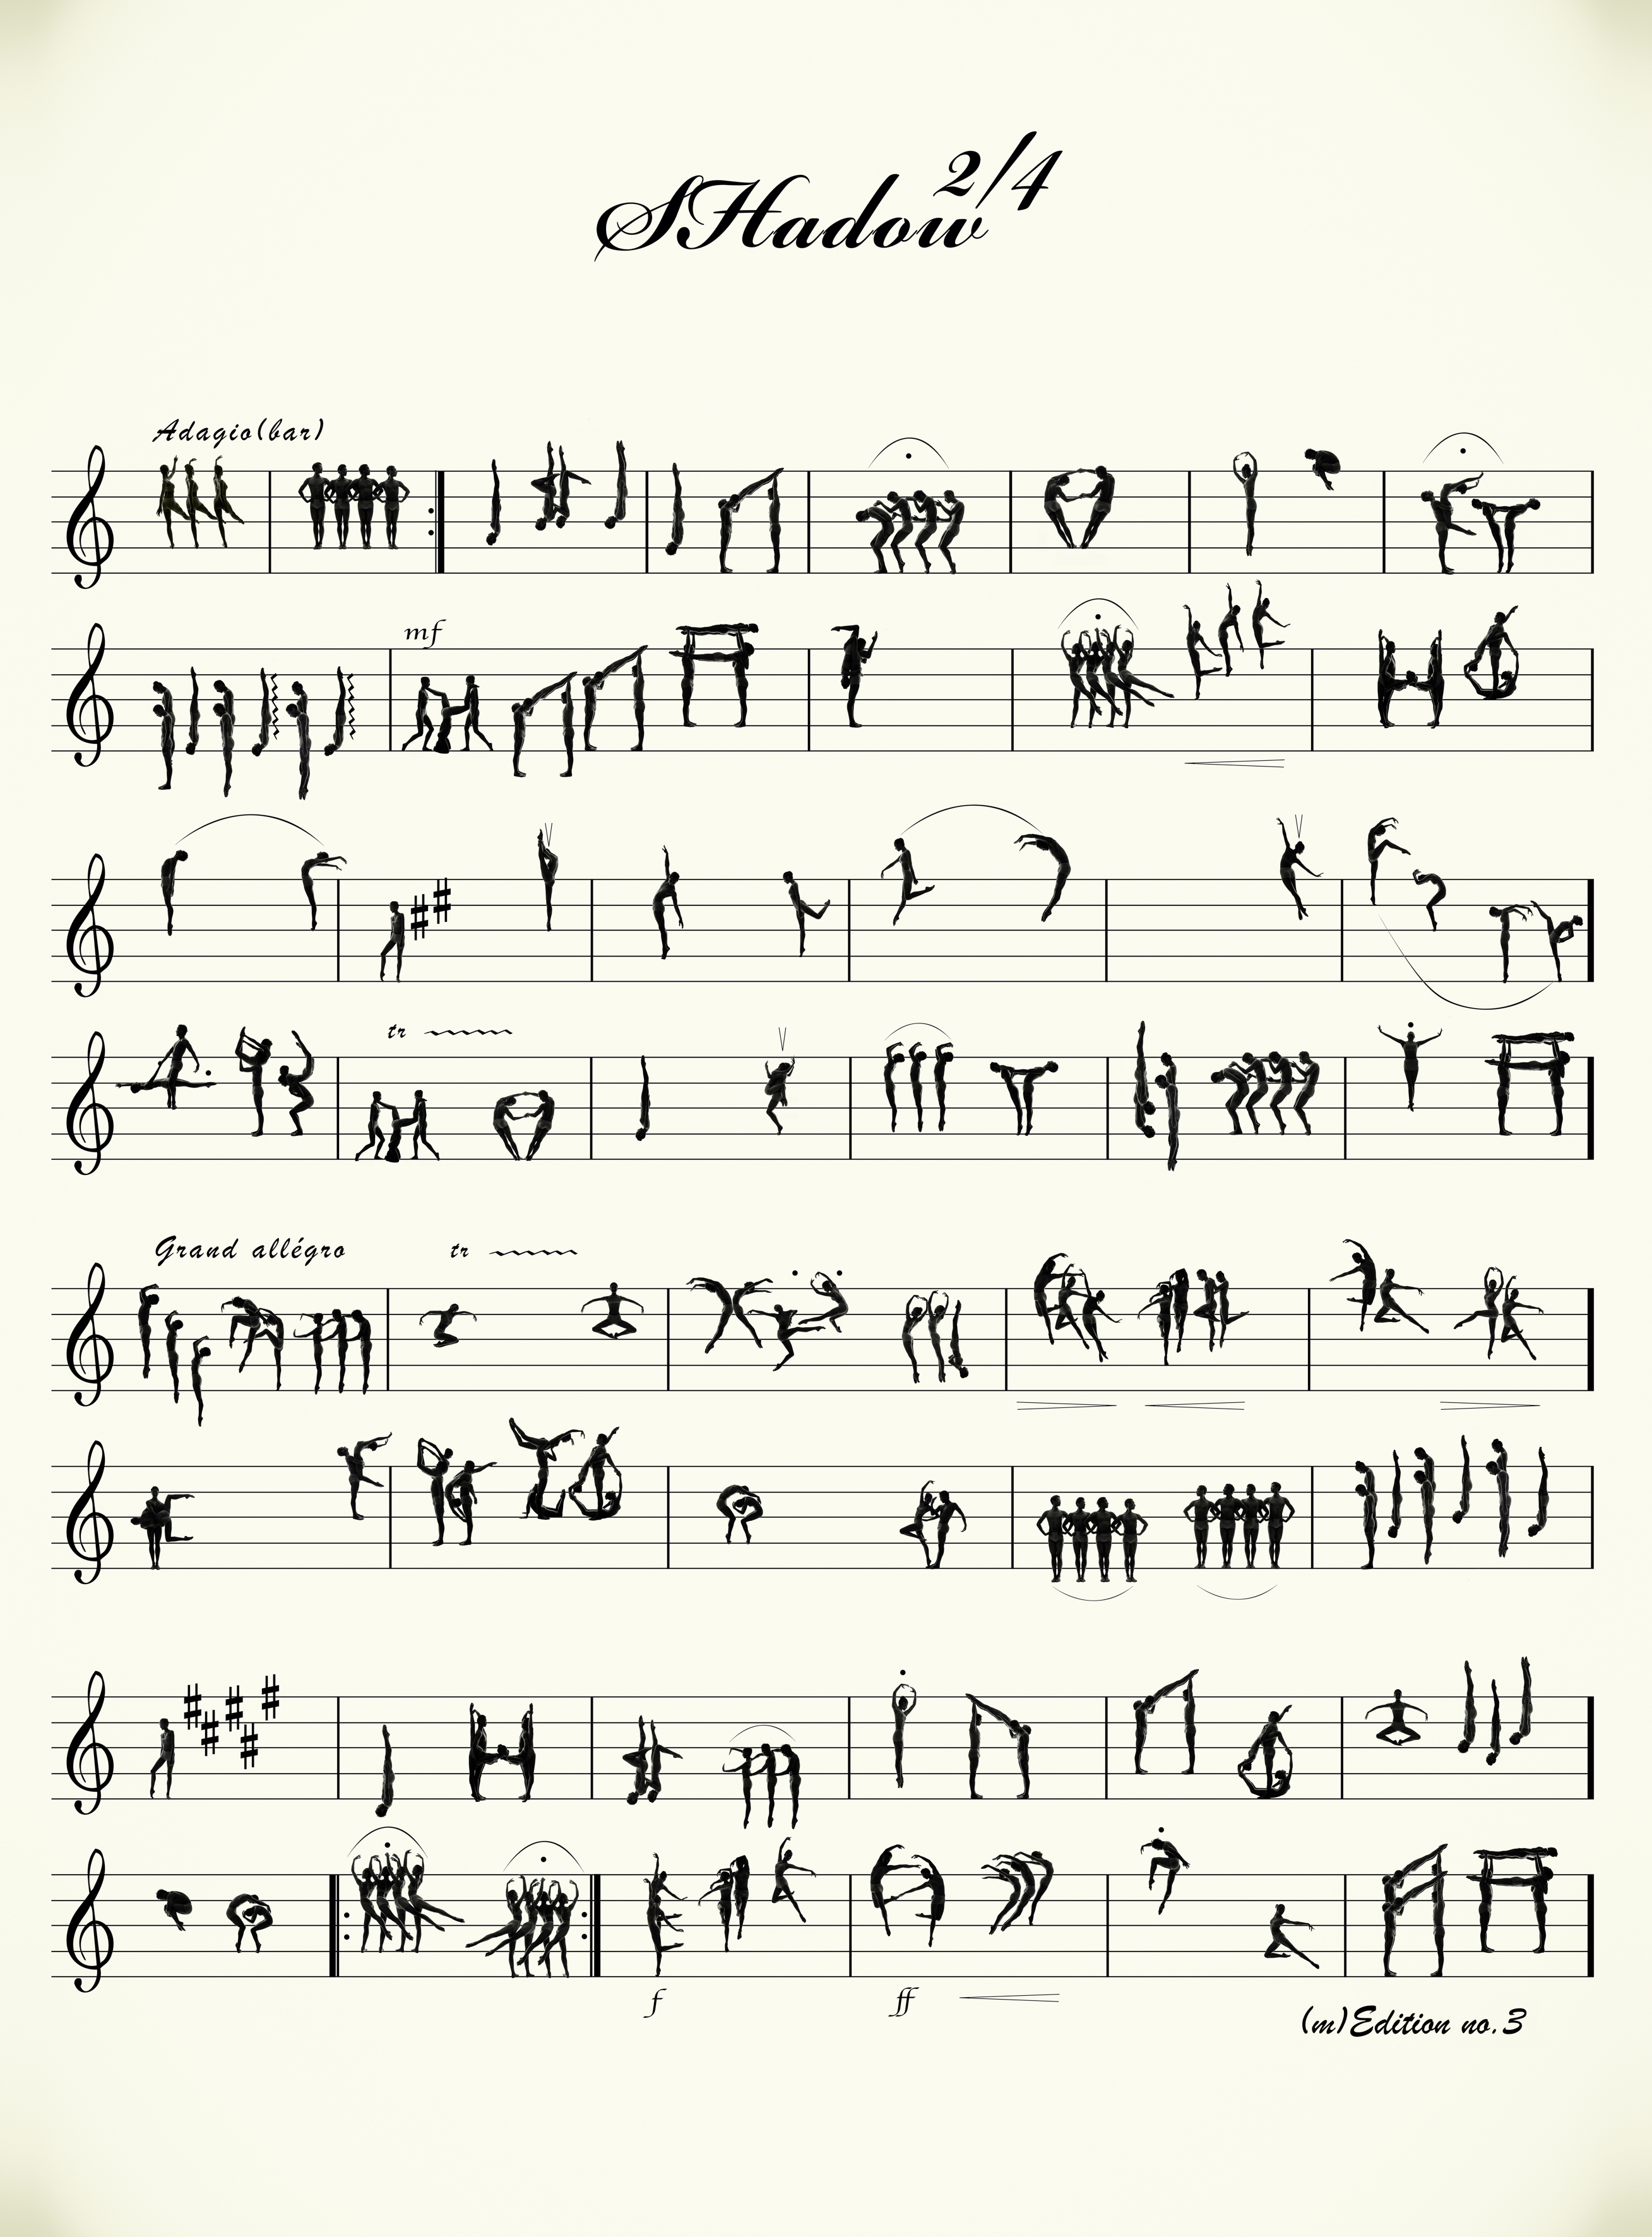 SHadow 2/4
Adagio(bar)
mf
tr
Grand allégro tr
f ff
(m)Edition no.3